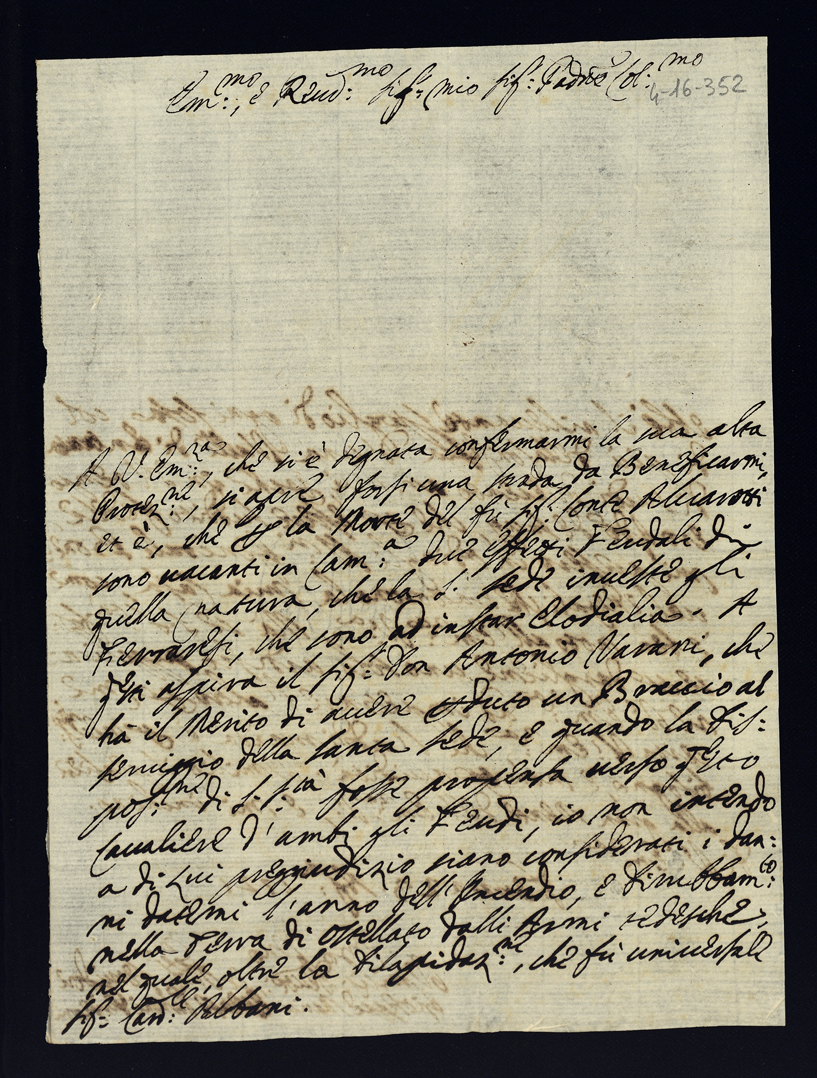 Em:mo, e Reud:mo Sig:r mio Sig:r Padrõe Col:mo
4-16-352
A V. Em:za, che si è degnata confermarmi la sua alta
Protez:ne, si apre forsi una strada da Beneficarmi,
et è, che per la Morte del fù Sig:r Conte Alvarotti
sono vacanti in Cam:a due effetti Feudali di
quella natura, che la S. Sede investe gli
Ferraresi, che sono ad instar Elodialia. A
q:sti aspira il Sig:r Don Antonio Varani, che
hà il Merito di avere perduto un Braccio al
serviggio della Santa Sede, e quando la Dis:
pos:ne di S. S.tà fosse propensa verso q:sto
Cavaliere d'ambi gli Feudi, io non intendo
a di Lui preggiudizio siano considerati i dan:
ni datemi l'anno dell'Incendio, e Dirubbam:to
nella Terra di Ostellato dalli Armi tedesche,
nel quale, oltre la dilapidaz:ne, che fù universale
Sig:r Card:le Albani.